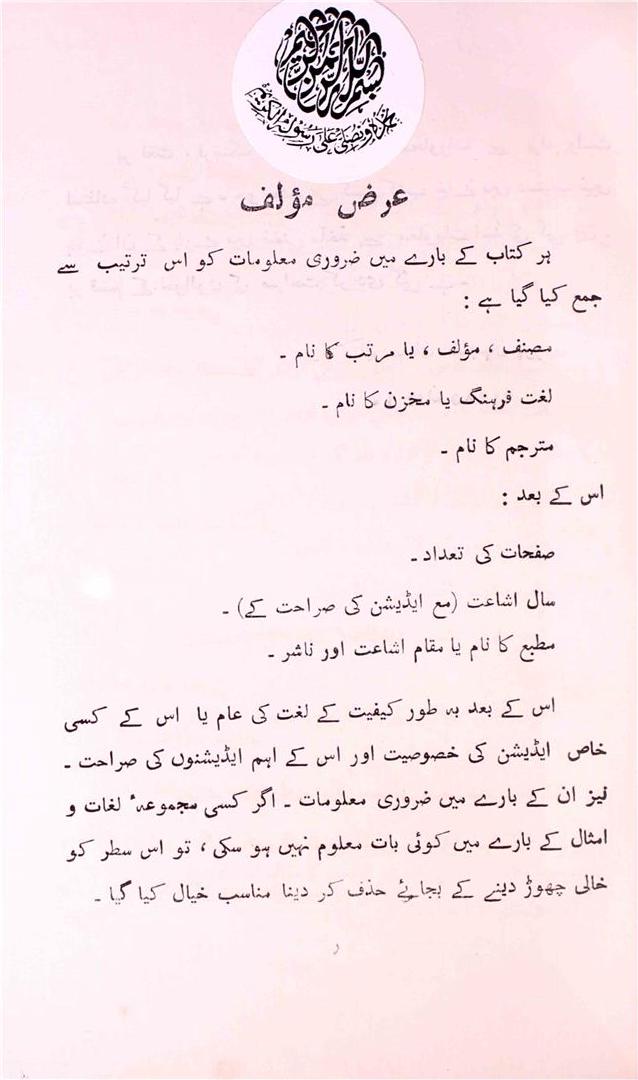 بسم اللہ الرحمن الرحیم
نحمدہ ونصلی علی رسولہ الکریم
عرض مؤلف
ہر کتاب کے بارے میں ضروری معلومات کو اس ترتیب سے
جمع کیا گیا ہے :
مصنف ، مؤلف ، یا مرتب کا نام ۔
لغت فرہنگ یا مخزن کا نام ۔
مترجم کا نام ۔
اس کے بعد :
صفحات کی تعداد ۔
سال اشاعت (مع ایڈیشن کی صراحت کے) ۔
مطبع کا نام یا مقام اشاعت اور ناشر ۔
اس کے بعد بہ طور کیفیت کے لغت کی عام یا اس کے کسی
خاص ایڈیشن کی خصوصیت اور اس کے اہم ایڈیشنوں کی صراحت ۔
نیز ان کے بارے میں ضروری معلومات ۔ اگر کسی مجموعۂ لغات و
امثال کے بارے میں کوئی بات معلوم نہیں ہو سکی ، تو اس سطر کو
خالی چھوڑ دینے کے بجائے حذف کر دینا مناسب خیال کیا گیا ۔
ر